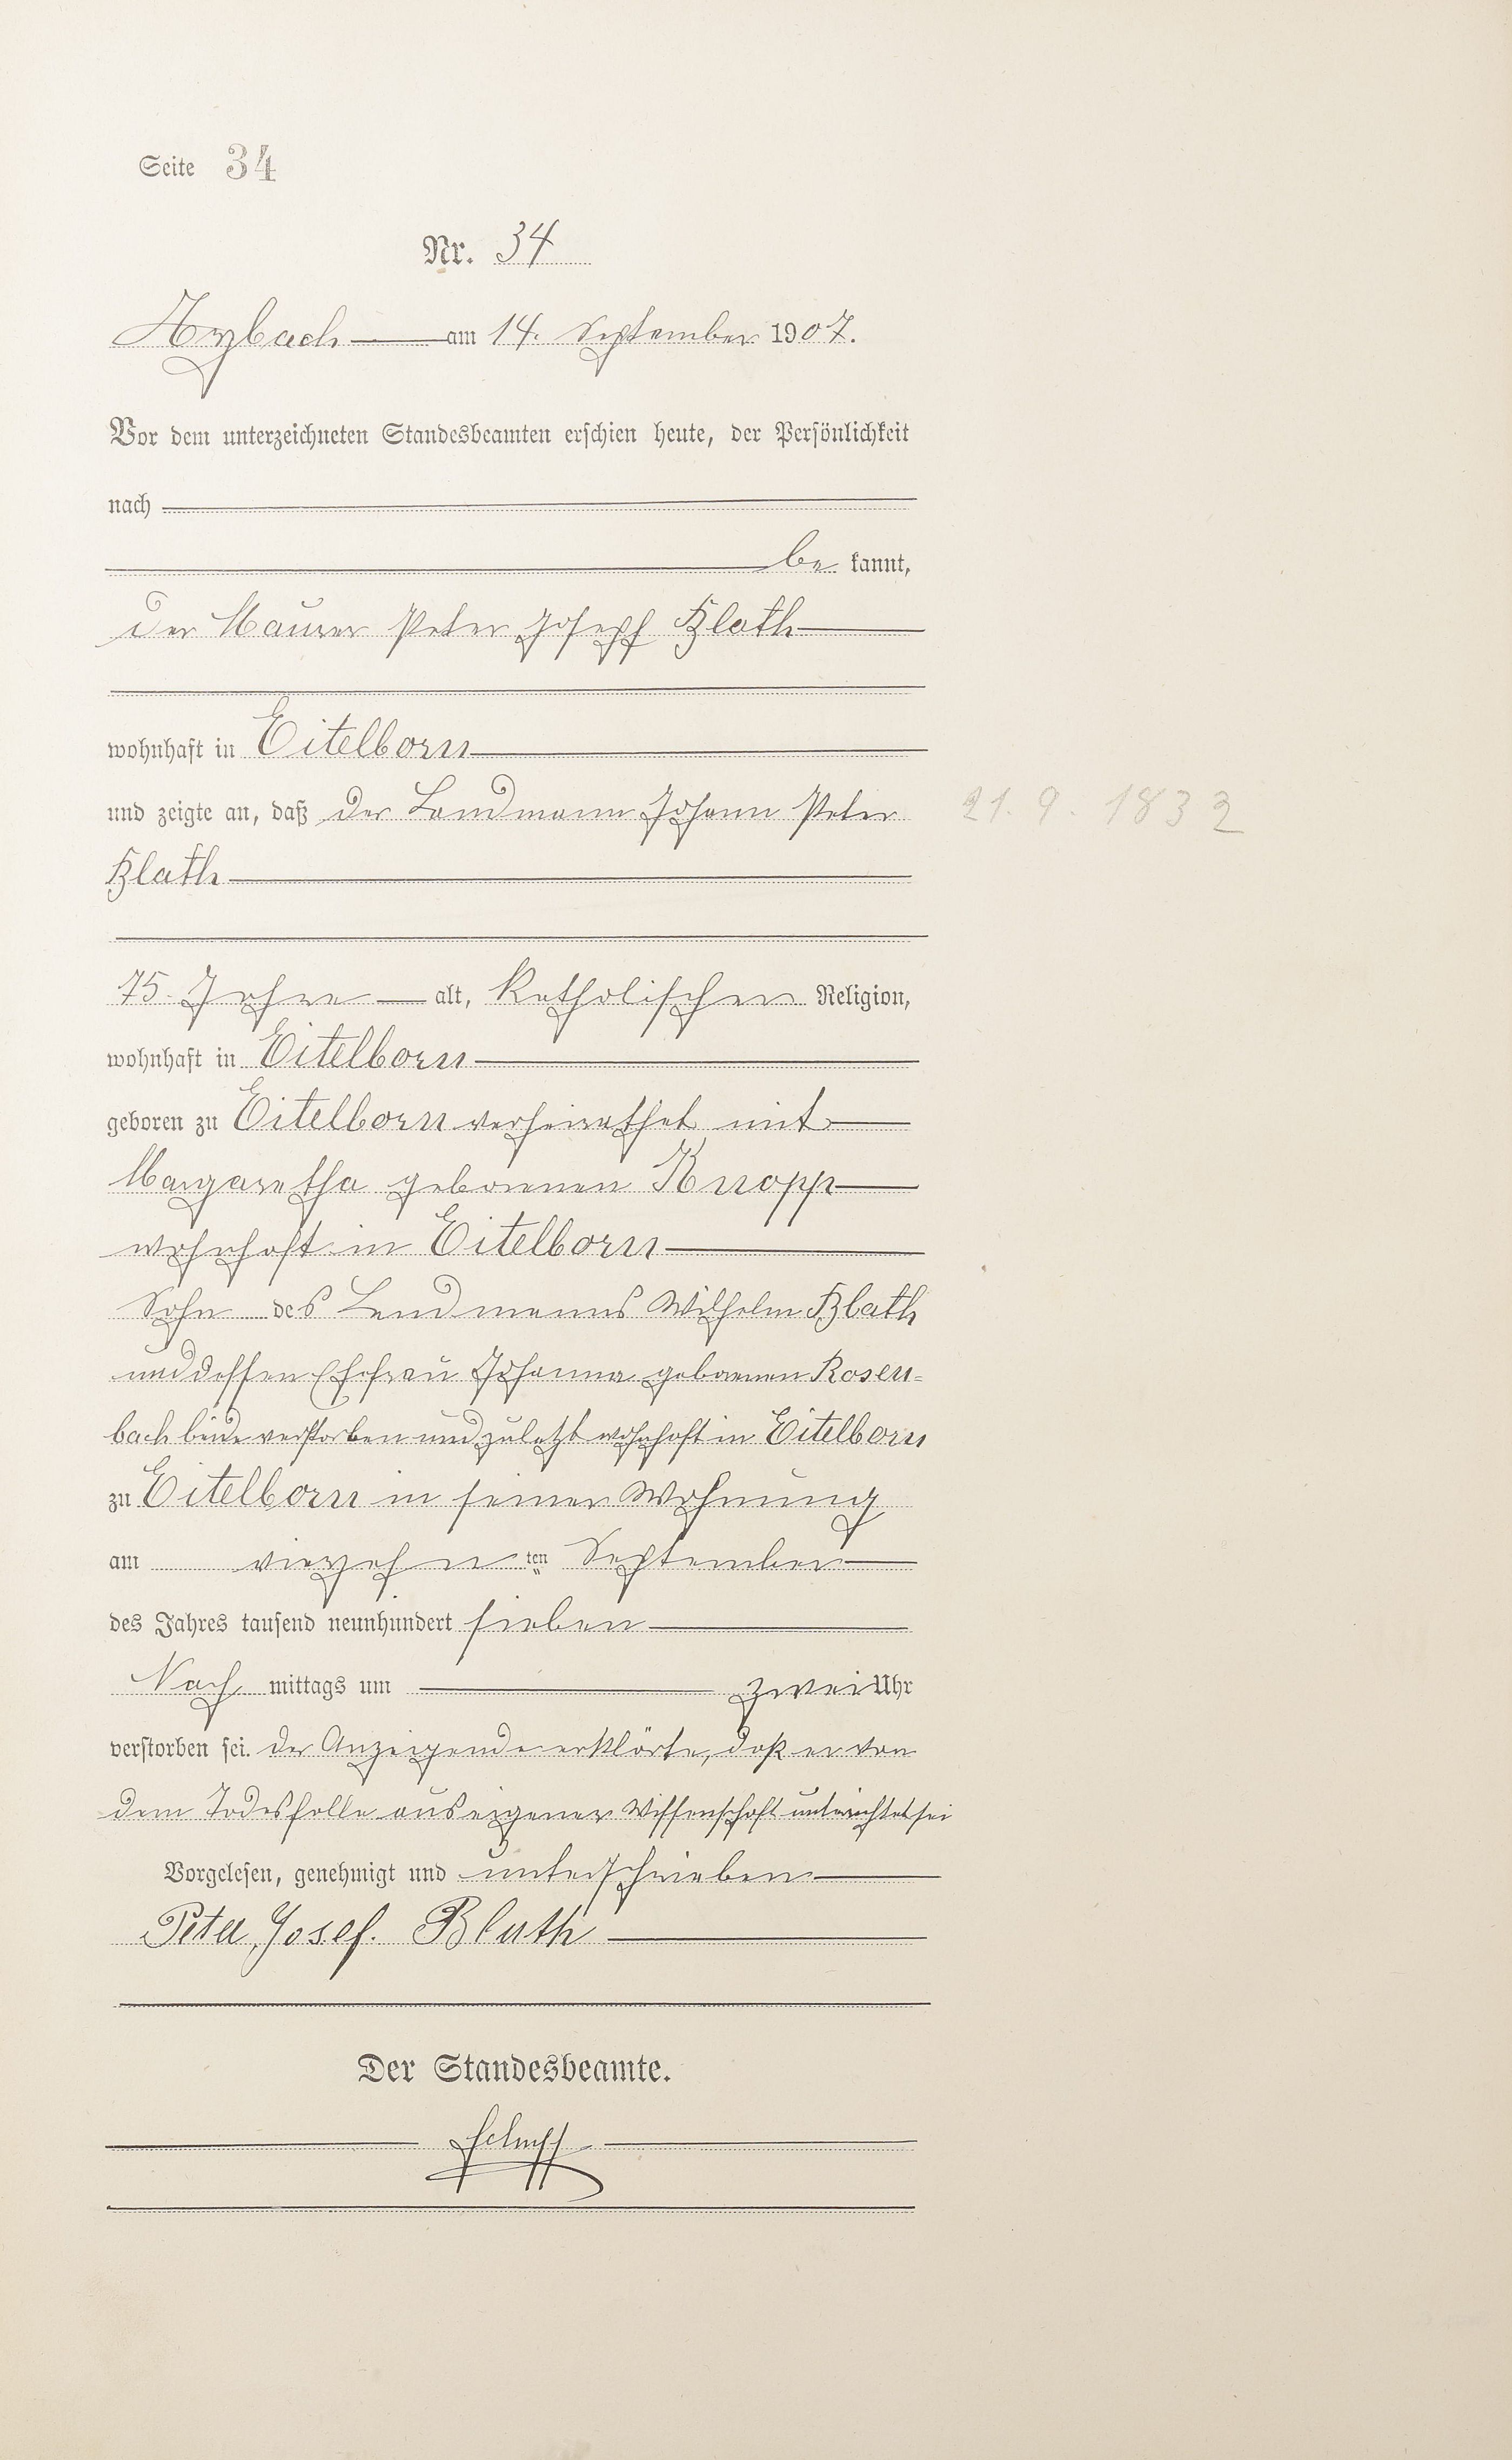 Seite 34
Nr. 34
Arzbach am 14. September 1907.
Vor dem unterzeichneten Standesbeamten erschien heute, der Persönlichkeit
nach
be kannt,
der Maurer Peter Joseph Blath
wohnhaft in Eitelborn
und zeigte an, daß der Landmann Johann Peter
21. 9. 1832
Blath
75 Jahre alt, katholischer Religion,
wohnhaft in Eitelborn
geboren zu Eitelborn verheirathet mit
Margaretha geborenen Knopp
wohnhaft in Eitelborn
Sohn des Landmanns Wilhelm Blath
und dessen Ehefrau Johanna geborenen Rosen-
bach beide verstorben und zuletzt wohnhaft in Eitelborn
zu Eitelborn in seiner Wohnung
am vierzehnten September
des Jahres tausend neunhundert sieben
Nach mittags um zwei Uhr
verstorben sei. der Anzeigende erklärte, daß er von
dem Todesfalle aus eigener Wissenschaft unterrichtet sei
Vorgelesen, genehmigt und unterschrieben
Peter Josef. Bluth
Der Standesbeamte.